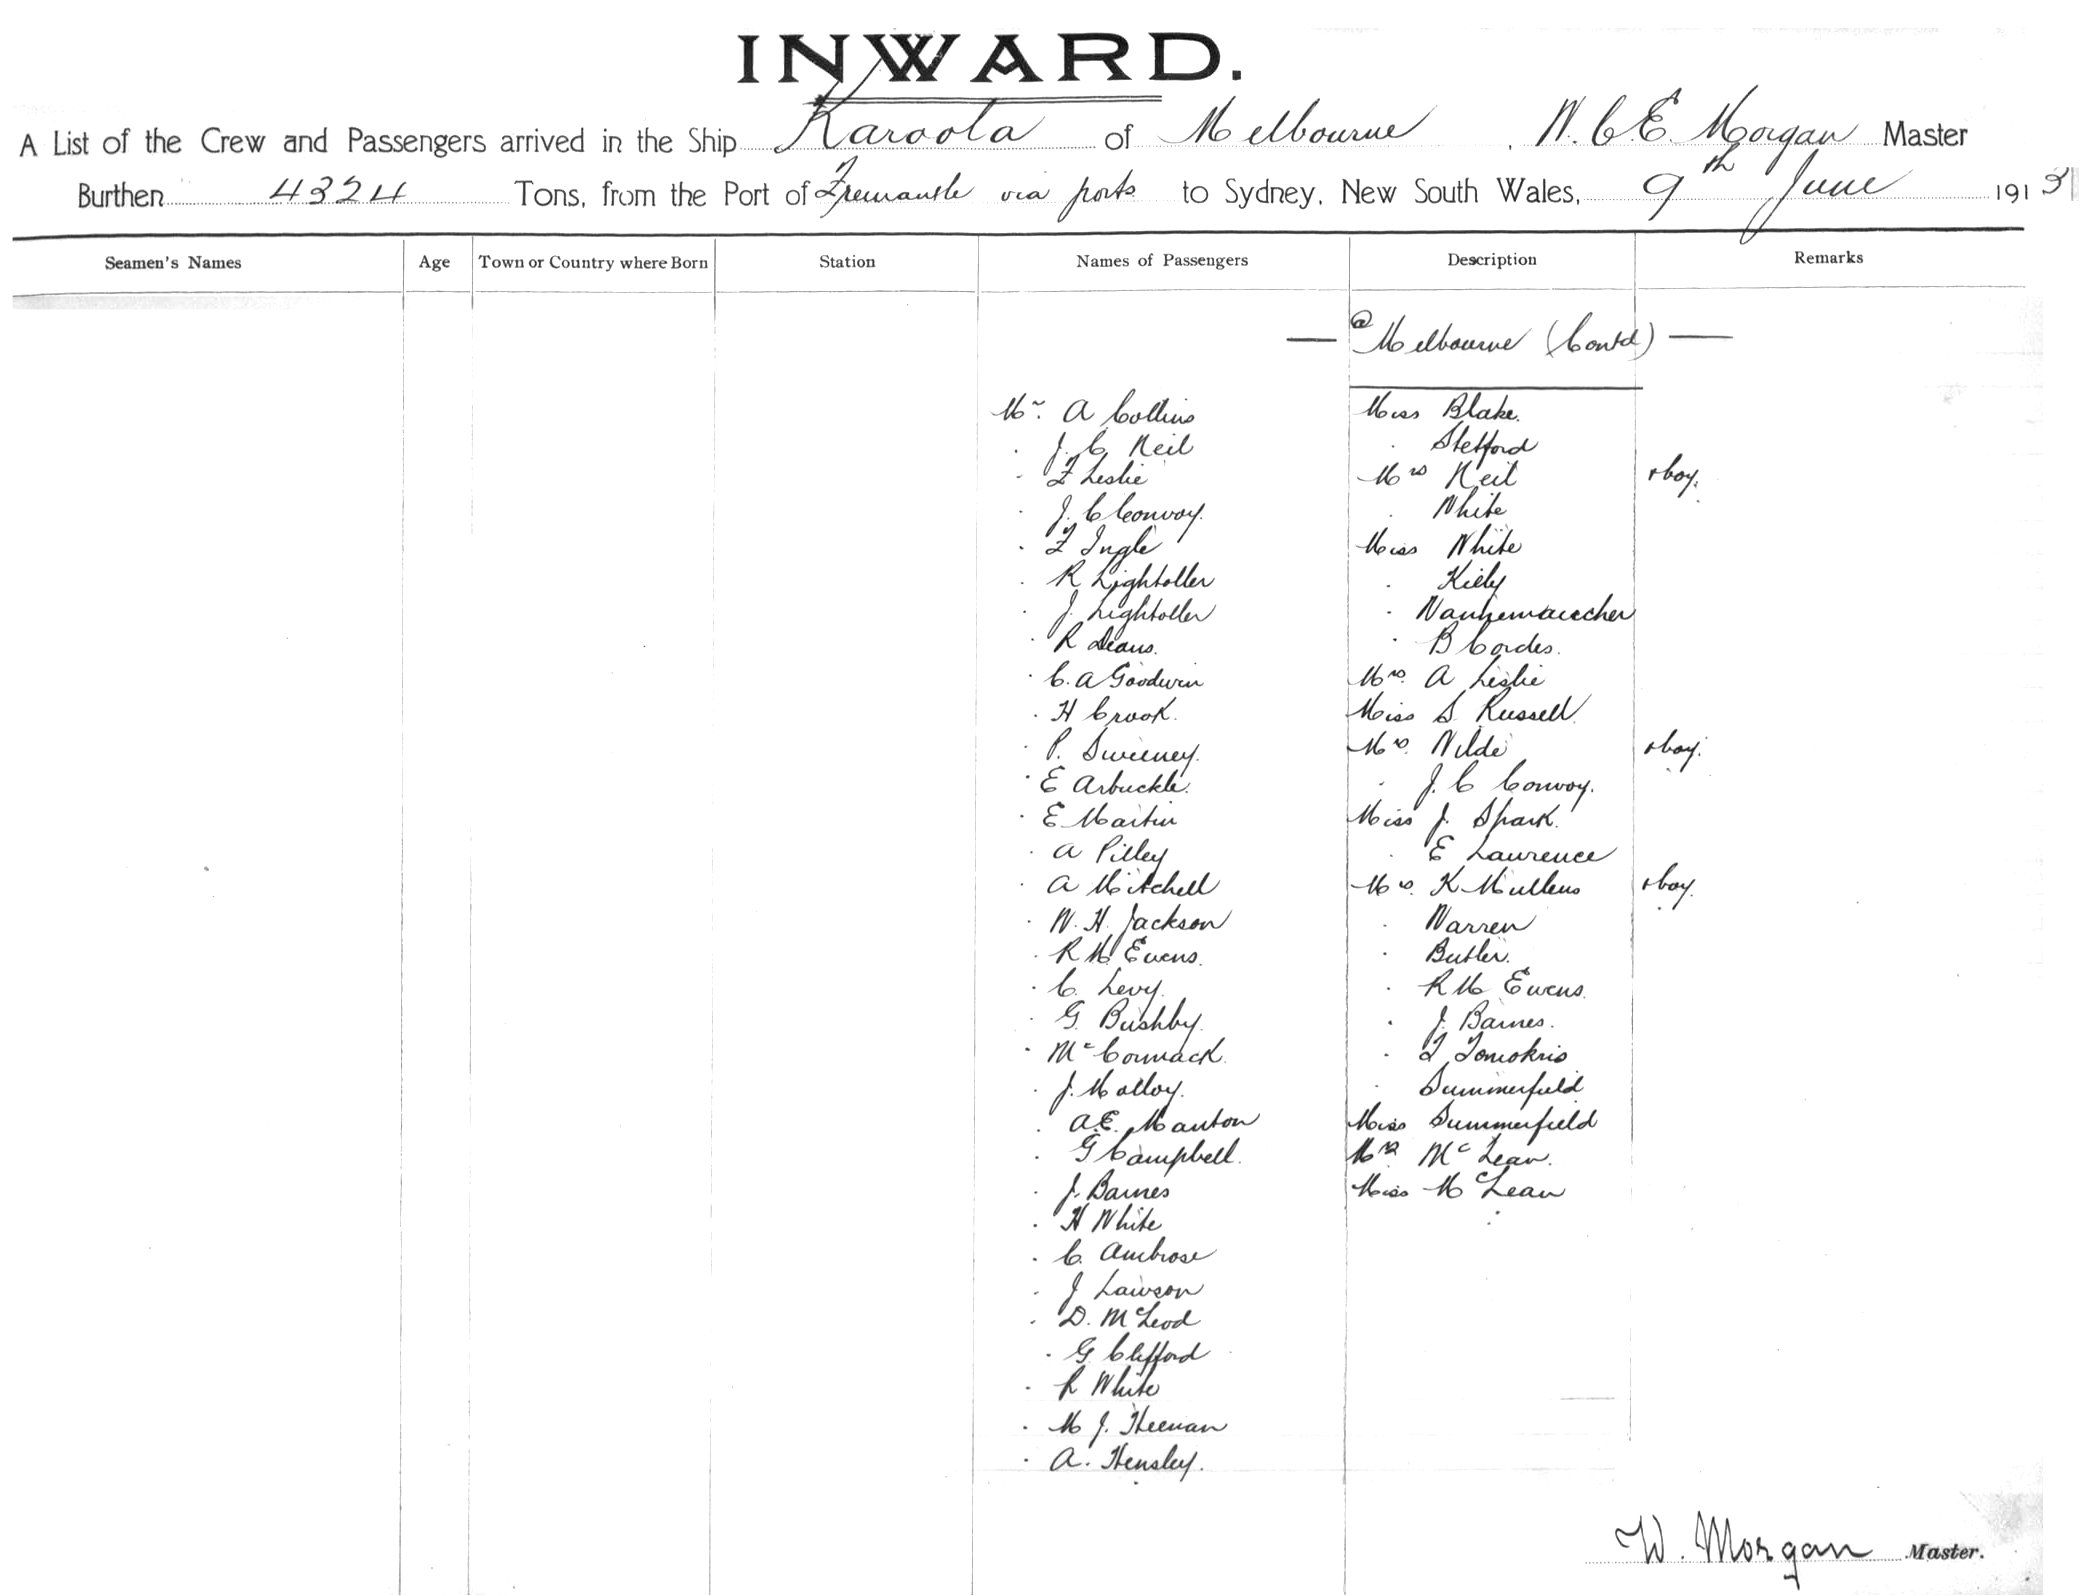 INWARD.
A List of the Crew and Passengers arrived in the Ship Karoola of Melbourne, W. C. E. Morgan Master
Burthen 4324 Tons, from the Port of Fremantle via ports to Sydney, New South Wales, 9th June 1913
Seamen's Names Age Town or Country where Born Station Names of Passengers Description Remarks
— @ Melbourne (Contd) —
Mr. A Collins Miss Blake.
. J. C. Neil . Stefford
. F Leslie Mrs Neil + boy.
. J. C Convoy. . White
. F Ingle Miss White
. R Lightoller . Kiely
. J. Lightoller .
. R Deans. . B Cordes.
. C. A Goodwin Mrs. A Leslie
. H Crook. Miss S. Russell.
. P. Sweeney. Mrs. Wilde + boy.
. E Arbuckle. . J. C Convoy.
. E Martin Miss J. Spark.
. A Pilley . E Lawrence
. A Mitchell Mrs. K Mullens + boy.
. W. H. Jackson . Warren
. R M Ewens. . Butler.
. C. Levy. . R M Ewens.
. G. Bushby. . J. Barnes.
. McCormack. .
. J. Molloy. . Summerfield
. A. E. Manton Miss Summerfield
. G Campbell. Mrs McLean.
. J. Barnes Miss McLean
. H White
. C. Ambrose
. J Lawson
. D. McLeod
. G. Clifford
. R White
. M J. Heenan
. A. Hensley.
W. Morgan Master.